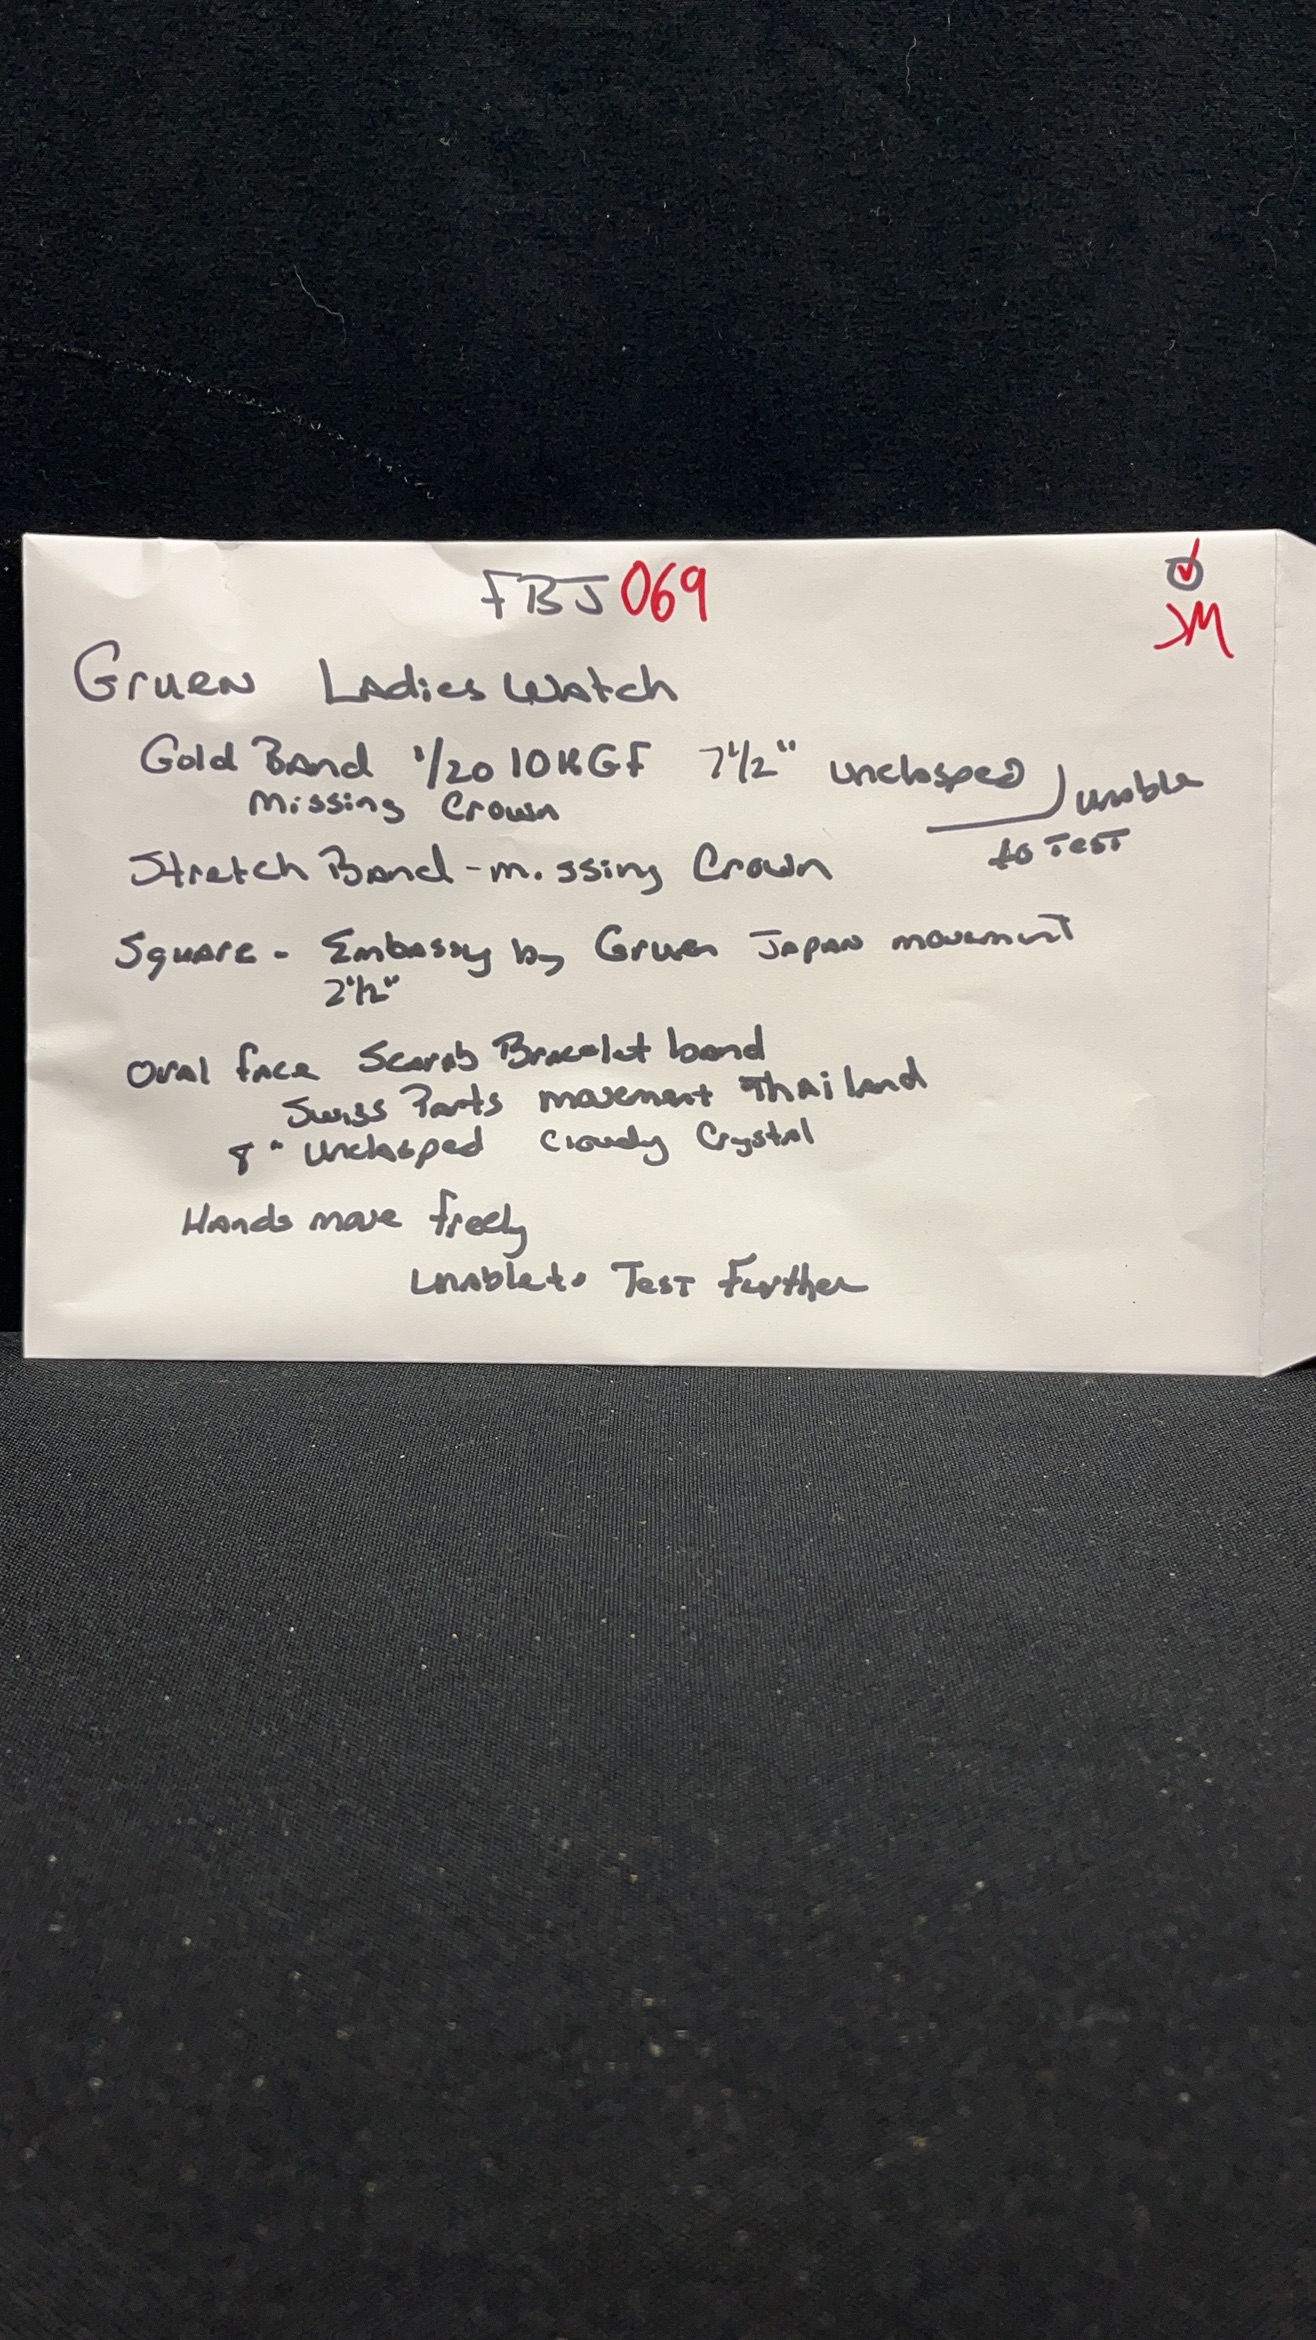 FBJ 069
JM
Gruen Ladies Watch
Gold Band 1/20 10K GF 7 1/2" unclasped
Missing Crown
unable
to Test
Stretch Band - missing Crown
Square - Embassy by Gruen Japan movement
2 1/2"
Oval face Scarab Bracelet band
Swiss Parts movement Thailand
8" unclasped Cloudy Crystal
Hands move freely
Unable to Test Further